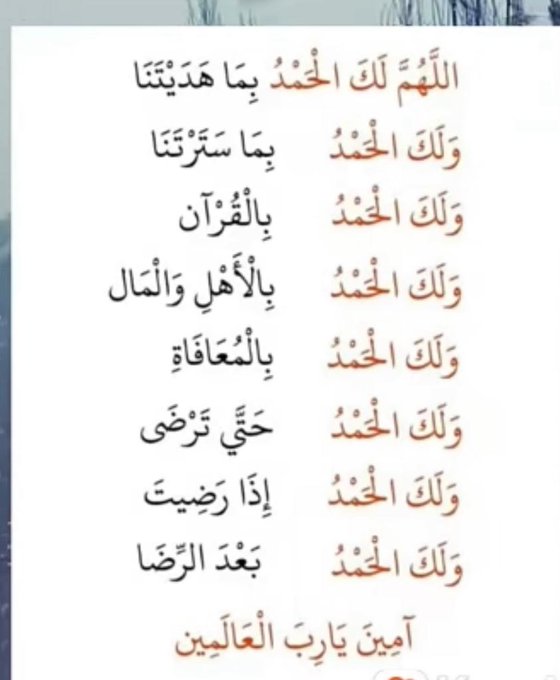 اللَّهُمَّ لَكَ الْحَمْدُ بِمَا هَدَيْتَنَا
وَلَكَ الْحَمْدُ بِمَا سَتَرْتَنَا
وَلَكَ الْحَمْدُ بِالْقُرْآن
وَلَكَ الْحَمْدُ بِالْأَهْلِ وَالْمَال
وَلَكَ الْحَمْدُ بِالْمُعَافَاةِ
وَلَكَ الْحَمْدُ حَتَّي تَرْضَى
وَلَكَ الْحَمْدُ إِذَا رَضِيتَ
وَلَكَ الْحَمْدُ بَعْدَ الرِّضَا
آمِينَ يَارِبَ الْعَالَمِين